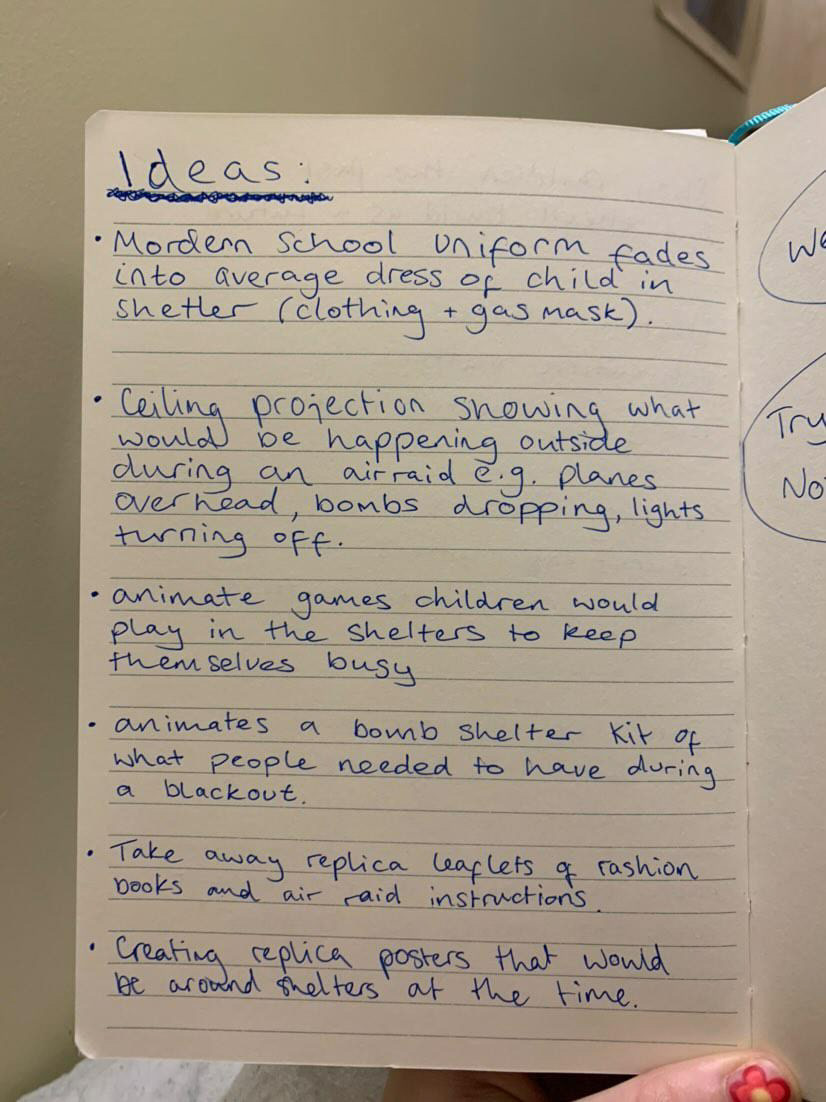 Ideas:
• Mordern school uniform fades
into average dress of child in
shetler (clothing + gas mask).
• Ceiling projection showing what
would be happening outside
during an airraid e.g. planes
overhead, bombs dropping, lights
turning off.
• animate games children would
play in the shelters to keep
themselves busy
• animates a bomb shelter kit of
what people needed to have during
a blackout.
• Take away replica leaflets of rashion
books and air raid instructions.
• Creating replica posters that would
be around shelters at the time.
We
Try
No